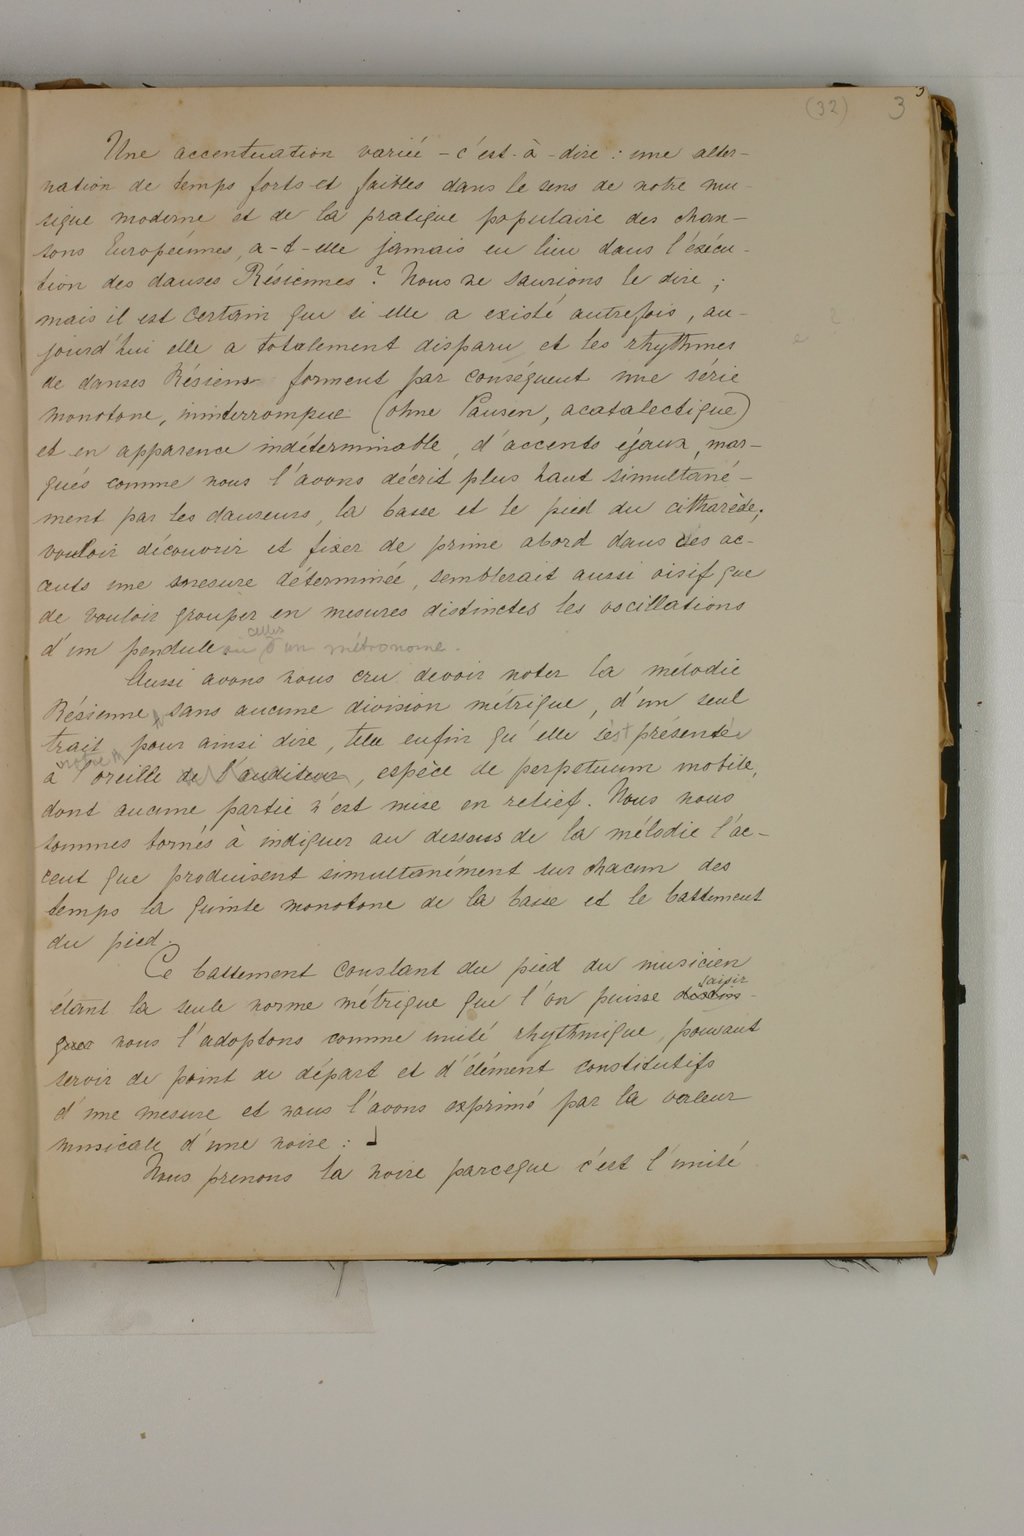 (32) 3
Une accentuation variée – c'est-à-dire : une alter-
nation de temps forts et faibles dans le sens de notre mu-
sique moderne et de la pratique populaire des chan-
sons Européennes, a-t-elle jamais eu lieu dans l'éxécu-
tion des danses Résiennes ? Nous ne saurions le dire ;
mais il est certain que si elle a existé autrefois, au-
jourd'hui elle a totalement disparu et les rhythmes
de danses Résiens forment par conséquent une série
monotone, ininterrompue (ohne Pausen, acatalectique)
et en apparence indéterminable, d'accents égaux, mar-
qués comme nous l'avons décrit plus haut simultané-
ment par les danseurs, la basse et le pied du citharède;
vouloir découvrir et fixer de prime abord dans ces ac-
cents une mesure déterminée, semblerait aussi oisif que
de vouloir grouper en mesures distinctes les oscillations
celles
d'un pendule ou d'un métronome.
Aussi avons nous cru devoir noter la mélodie
Résienne sans aucune division métrique, d'un seul
trait pour ainsi dire, telle enfin qu'elle s'est présentée
notre
à l'oreille de l'auditeur, espèce de perpetuum mobile,
dont aucune partie n'est mise en relief. Nous nous
sommes bornés à indiquer au dessous de la mélodie l'ac-
cent que produisent simultanément sur chacun des
temps la quinte monotone de la basse et le battement
du pied.
Ce battement constant du pied du musicien
saisir
étant la seule norme métrique que l'on puisse
nous l'adoptons comme unité rhythmique, pouvant
servir de point de départ et d'élément constitutifs
d'une mesure et nous l'avons exprimé par la valeur
musicale d'une noire : ♩
Nous prenons la noire parceque c'est l'unité